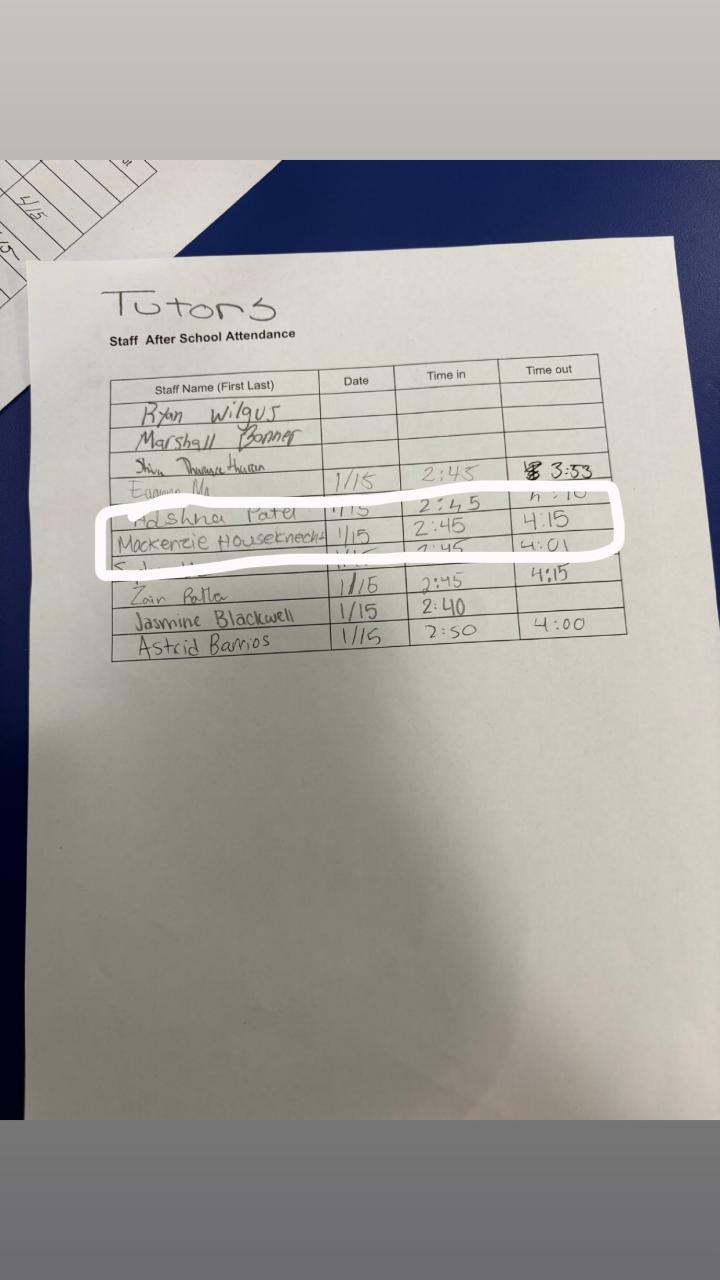 4/15
Tutors
Staff After School Attendance
Staff Name (First Last) Date Time in Time out
Ryan Wilgus
Marshall Bonner
Shiva
1/15 2:45 3:53
Patel 1/15 2:45
Mackenzie Houseknecht 1/15 2:45 4:15
2:45 4:01
Zain 1/15 2:45 4:15
Jasmine Blackwell 1/15 2:40
Astrid Barrios 1/15 2:50 4:00